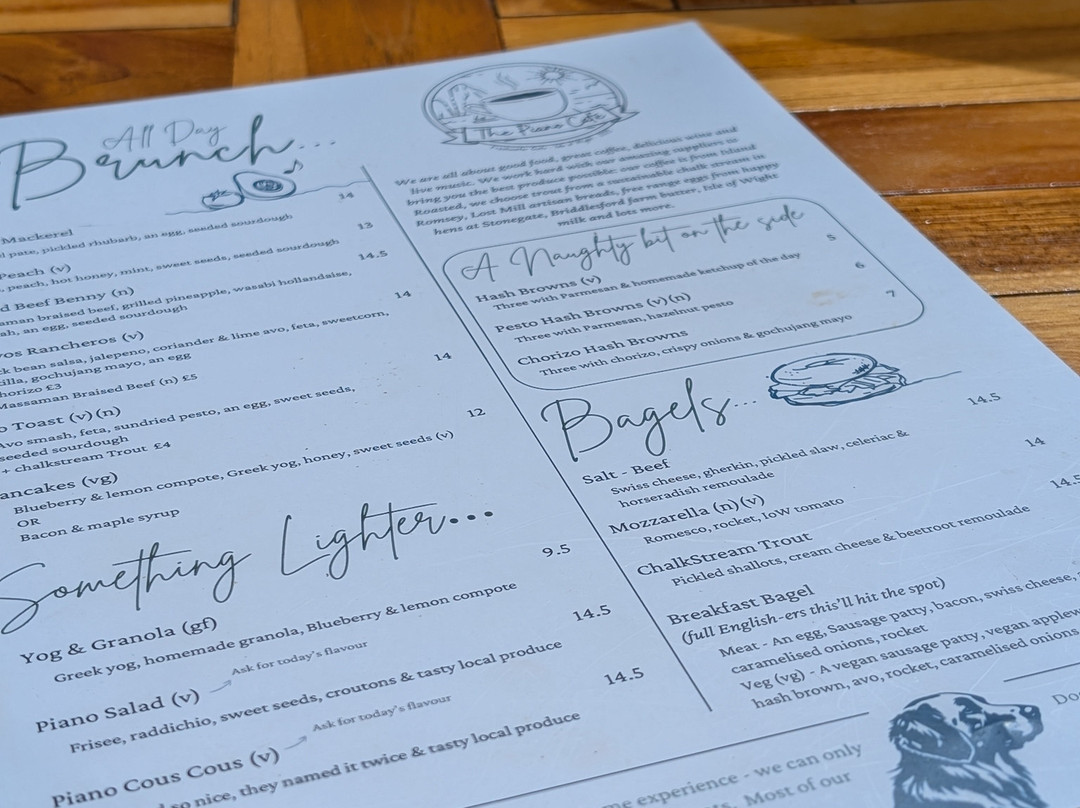 All Day
Brunch...
Mackerel 14
pate, pickled rhubarb, an egg, seeded sourdough
Peach (v) 13
, peach, hot honey, mint, sweet seeds, seeded sourdough
Beef Benny (n) 14.5
braised beef, grilled pineapple, wasabi hollandaise,
an egg, seeded sourdough
Rancheros (v) 14
bean salsa, jalepeno, coriander & lime avo, feta, sweetcorn,
gochujang mayo, an egg
£3
Massaman Braised Beef (n) £5
Toast (v)(n) 14
Avo smash, feta, sundried pesto, an egg, sweet seeds,
seeded sourdough
+ chalkstream Trout £4
(vg) 12
Blueberry & lemon compote, Greek yog, honey, sweet seeds (v)
OR
Bacon & maple syrup
Something Lighter...
Yog & Granola (gf) 9.5
Greek yog, homemade granola, Blueberry & lemon compote
Piano Salad (v) Ask for today's flavour 14.5
Frisee, raddichio, sweet seeds, croutons & tasty local produce
Piano Cous Cous (v) Ask for today's flavour 14.5
so nice, they named it twice & tasty local produce
The Piano Cafe
We are all about good food, great coffee, delicious wine and
live music. We work hard with our amazing suppliers to
bring you the best produce possible: our coffee is from Island
Roasted, we choose trout from a sustainable chalk stream in
Romsey, Lost Mill artisan breads, free range eggs from happy
hens at Stonegate, Briddlesford farm butter, Isle of Wight
milk and lots more.
A Naughty bit on the side
Hash Browns (v) 5
Three with Parmesan & homemade ketchup of the day
Pesto Hash Browns (v)(n) 6
Three with Parmesan, hazelnut pesto
Chorizo Hash Browns 7
Three with chorizo, crispy onions & gochujang mayo
Bagels...
Salt - Beef 14.5
Swiss cheese, gherkin, pickled slaw, celeriac &
horseradish remoulade
Mozzarella (n)(v) 14
Romesco, rocket, IoW tomato
ChalkStream Trout 14.5
Pickled shallots, cream cheese & beetroot remoulade
Breakfast Bagel
(full English-ers this'll hit the spot)
Meat - An egg, Sausage patty, bacon, swiss cheese,
caramelised onions, rocket
Veg (vg) - A vegan sausage patty, vegan
hash brown, avo, rocket, caramelised onions
experience - we can only
Most of our